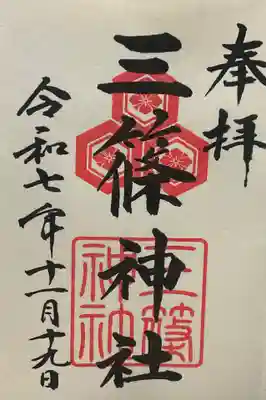 奉拝
三篠神社
三篠神社
令和七年十一月十九日